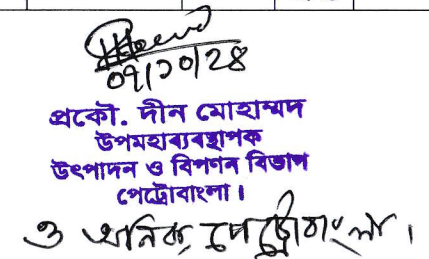 ০৭/১০/২৪
প্রকৌ. দীন মোহাম্মদ
উপমহাব্যবস্থাপক
উৎপাদন ও বিপণন বিভাগ
পেট্রোবাংলা।
ও খনিজ, পেট্রোবাংলা।